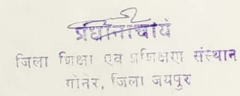 प्रधानाचार्य
जिला शिक्षा एवं प्रशिक्षण संस्थान
गोनेर, जिला जयपुर